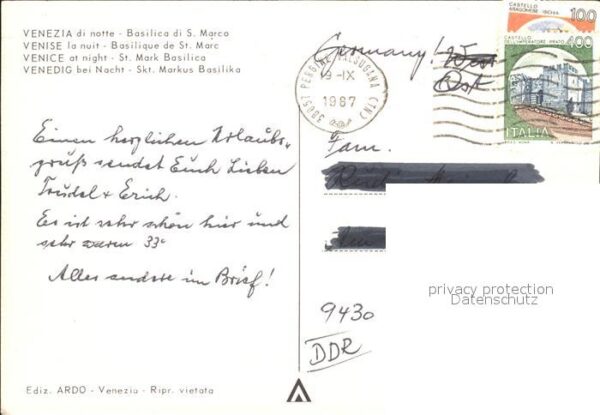 VENEZIA di notte - Basilica di S. Marco
VENISE la nuit - Basilique de St. Marc
VENICE at night - St. Mark Basilica
VENEDIG bei Nacht - Skt. Markus Basilika
Einen herzlichen Urlaubs-
gruß sendet Euch Lieben
Trudel + Erich.
Es ist sehr schön hier und
sehr warm 33°
Alles andere im Brief!
Ediz. ARDO - Venezia - Ripr. vietata
Germany! West
Ost
38057 PERGINE VALSUGANA (TN)
9-IX
1987
CASTELLO
100
CASTELLO
DELL'IMPERATORE PRATO
400
ITALIA
Fam.
privacy protection
Datenschutz
9430
DDR